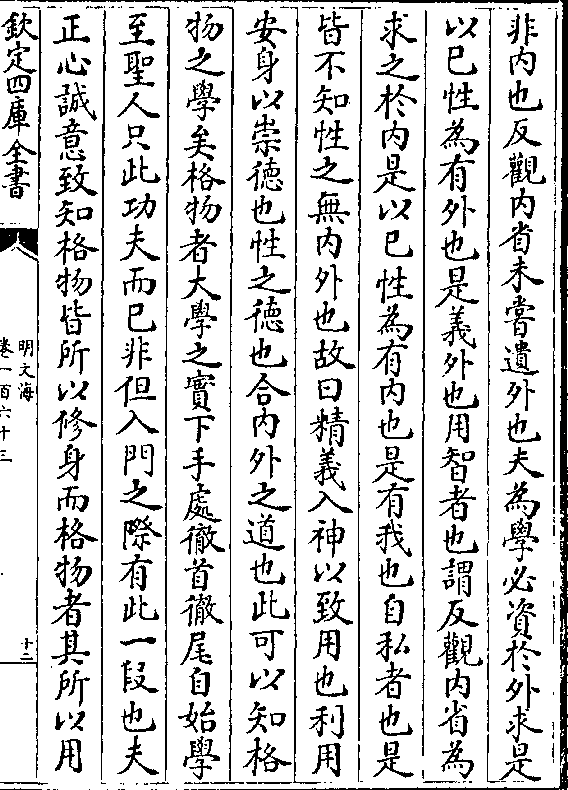 非内也反觀内省未嘗遺外也夫為學必資於外求是
以已性為有外也是義外也用智者也謂反觀内省為
求之於内是以已性為有内也是有我也自私者也是
皆不知性之無内外也故曰精義入神以致用也利用
安身以崇徳也性之徳也合内外之道也此可以知格
物之學矣格物者大學之實下手處徹首徹尾自始學
至聖人只此功夫而已非但入門之際有此一段也夫
正心誠意致知格物皆所以修身而格物者其所以用
欽定四庫全書
明文海
卷一百六十三
十二